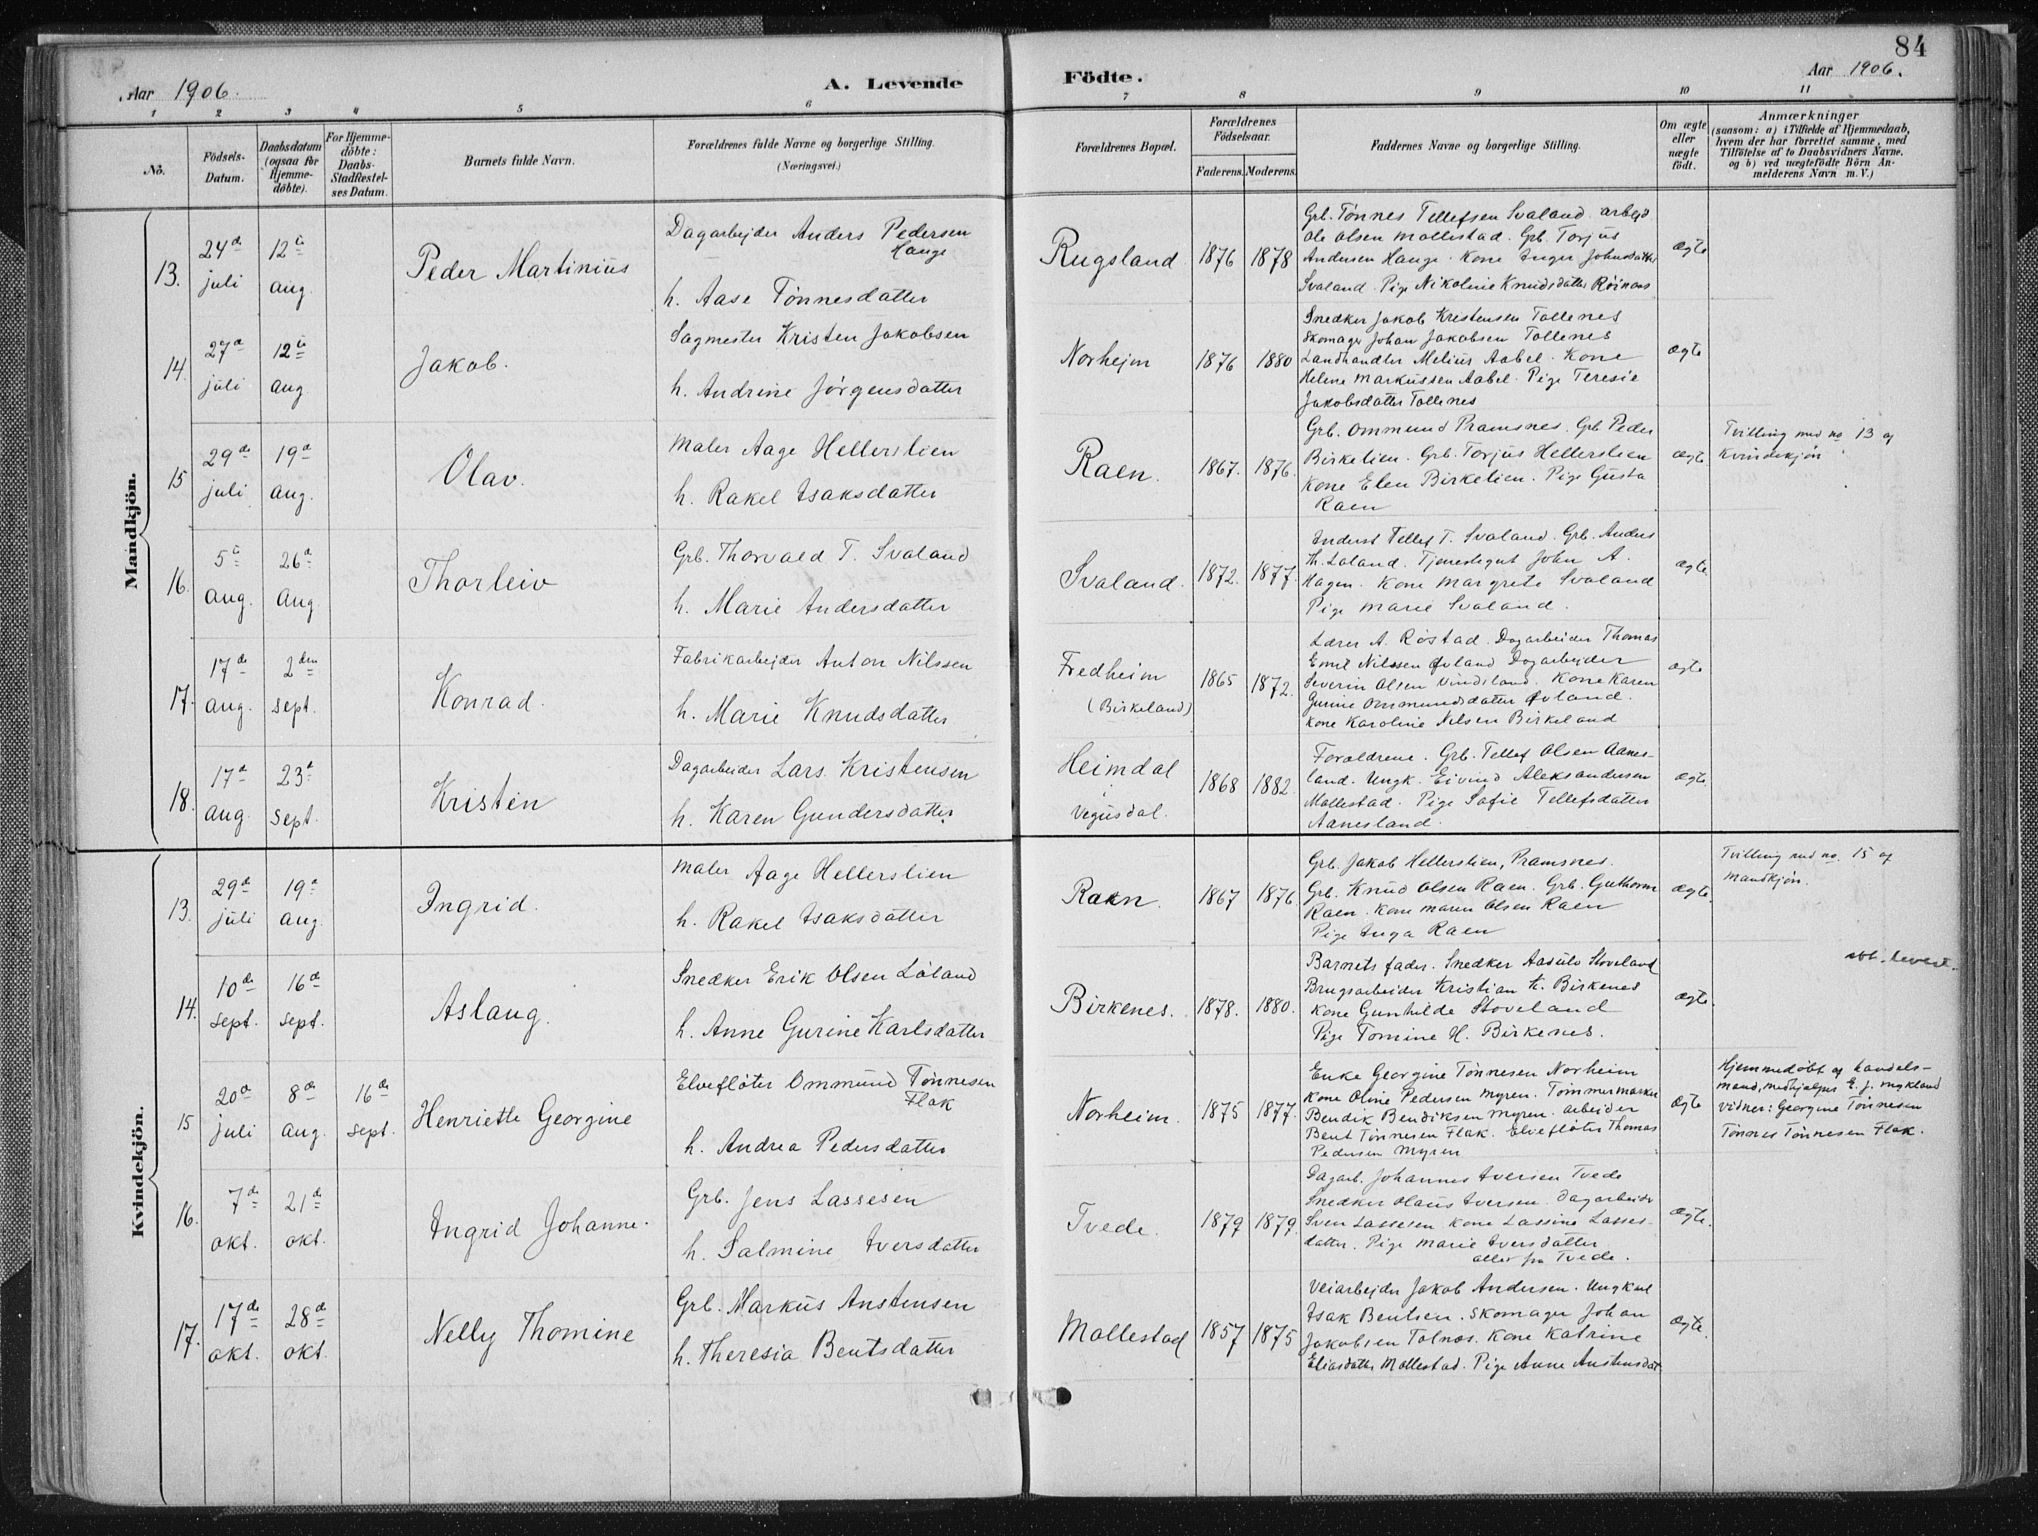 84
Aar 1906.
A. Levende
Födte.
Aar 1906.
1 2 3 4 5 6 7 8 9 10 11
No.
Födsels-Datum.
Daabsdatum (ogsaa for Hjemme-döbte).
For Hjemme-döbte: Daabs-Stadfæstel-ses Datum.
Barnets fulde Navn.
Forældrenes fulde Navne og borgerlige Stilling.
(Næringsvei.)
Forældrenes Bopæl.
Forældrenes Födselsaar.
Faderens. Moderens.
Faddernes Navne og borgerlige Stilling.
Om ægte eller uægte födt.
Anmærkninger
(saasom: a) i Tilfælde af Hjemmedaab, hvem der har forrettet samme, med Tilföielse af to Daabsvidners Navne, og b) ved uægtefödte Börn An-melderens Navn m. V.)
Mandkjön.
13. 24de juli 12te aug. Peder Martinius
Dagarbejder Anders Pedersen Hauge
h. Aase Tønnesdatter
Rugsland 1876 1878
Grb. Tønnes Tellefsen Svaland. arbejd
Ole Olsen Mollestad. Grb. Torjus
Andersen Hauge. Kone Inger Johnsdatter
Svaland. Pige Nikoline Knudsdatter Røinaas
ægte
14. 27de juli 12te aug Jakob.
Sagmester Kristen Jakobsen
h. Andrine Jörgensdatter
Norheim 1876 1880
Snedker Jakob Kristensen Tollenes
Skomager Johan Jakobsen Tollenes
Landhandler Melius Aabel. Kone
Helene Markussen Aabel. Pige Teresie
Jakobsdatter Tollenes
ægte
15 29de juli 19de aug. Olav.
Maler Aage Hellerslien
h. Rakel Isaksdatter
Raen. 1867. 1876.
Grb. Ommund Pramsnes. Grb Peder
Birkelien. Grb. Torjus Hellerslien
Kone Elen Birkelien. Pige Gusta
Raen
ægte.
Tvilling med no. 13 af
Kvindekjön
16. 5te aug. 26de aug Thorleiv
Grb. Thorvald T. Svaland
h. Marie Andersdatter
Svaland. 1872. 1877.
Inderst Tellef T. Svaland. Grb. Anders
Th. Laland. Tjenestegut John A.
Hagen. Kone Margrete Svaland
Pige Marie Svaland.
ægte.
17. 17de aug. 2den sept. Konrad.
Fabrikarbejder Anton Nilssen
h. Marie Knudsdatter
Fredheim (Birkeland) 1865 1872.
Lærer A. Røstad. Dagarbeider Thomas
Emil Nilssen Øvland Dagarbejder
Severin Olsen Vindsland. Kone Karen
Gurine Ommundsdatter Øvland.
Kone Karoline Nilsen Birkeland
ægte
18. 17de aug 23de sept. Kristen
Dagarbeider Lars Kristensen
h. Karen Gundersdatter
Heimdal Vegusdal. 1868 1882.
Forældrene. Grb. Tellef Olsen Aanes-
land. Ungk. Eivind Aleksandersen
Mollestad. Pige Sofie Tellefsdatter
Aanesland.
ægte.
Kvindekjön.
13. 29de juli 19de aug. Ingrid.
Maler Aage Hellerslien
h. Rakel Isaksdatter
Raen. 1867 1876
Grb. Jakob Hellerslien, Pramsnes.
Grb. Knud Olsen Raen. Grb. Guthorm
Raen. Kone Maren Olsen Raen
Pige Inga Raen
ægte.
Tvilling med no. 15 af
Mandkjön.
14. 10de sept. 16de sept. Aslaug.
Snedker Erik Olsen Løland
h. Anne Gurine Karlsdatter
Birkenes. 1878. 1880.
Barnets fader. Snedker Aasulv Stoveland
Brugsarbeider Kristian K. Birkenes
Kone Gunhilde Stoveland
Pige Tomine H. Birkenes.
ægte.
15 20de juli 8de aug. 16de sept. Henriette Georgine
Elvefløter Ommund Tønnesen Flak
h. Andrea Pedersdatter
Norheim. 1875 1877.
Enke Georgine Tønnesen Norheim
Kone Oline Pedersen Myren. Tømmermærker
Bendik Bendiksen Myren. arbeider
Bent Tønnesen Flak. Elvefløter Thomas
Pedersen Myren
ægte
Hjemmedöbt af handels-
mand, medhjælper E. J. Mykland
Vidner: Georgine Tönnesen
Tönnes Tönnesen Flak.
16. 7de okt. 21de okt. Ingrid Johanne.
Grb. Jens Lassesen
h. Salmine Iversdatter
Tvede. 1879 1879.
Dagarb. Johannes Iversen Tvede
Snedker Olaus Iversen. dagarbeider
Sven Lassesen. Kone Lassine Lasses-
datter. Pige Marie Iversdatter
alle fra Tvede.
ægte.
17. 17de okt. 28de okt. Nelly Thomine
Grb. Markus Anstensen
h. Theresia Bentsdatter
Mollestad 1857 1875
Veiarbejder Jakob Andersen. Ungkarl
Isak Bentsen. Skomager Johan
Jakobsen Tolnæs. Kone Katrine
Eliasdatter Mollestad. Pige Anne Anstensdat
ægte.